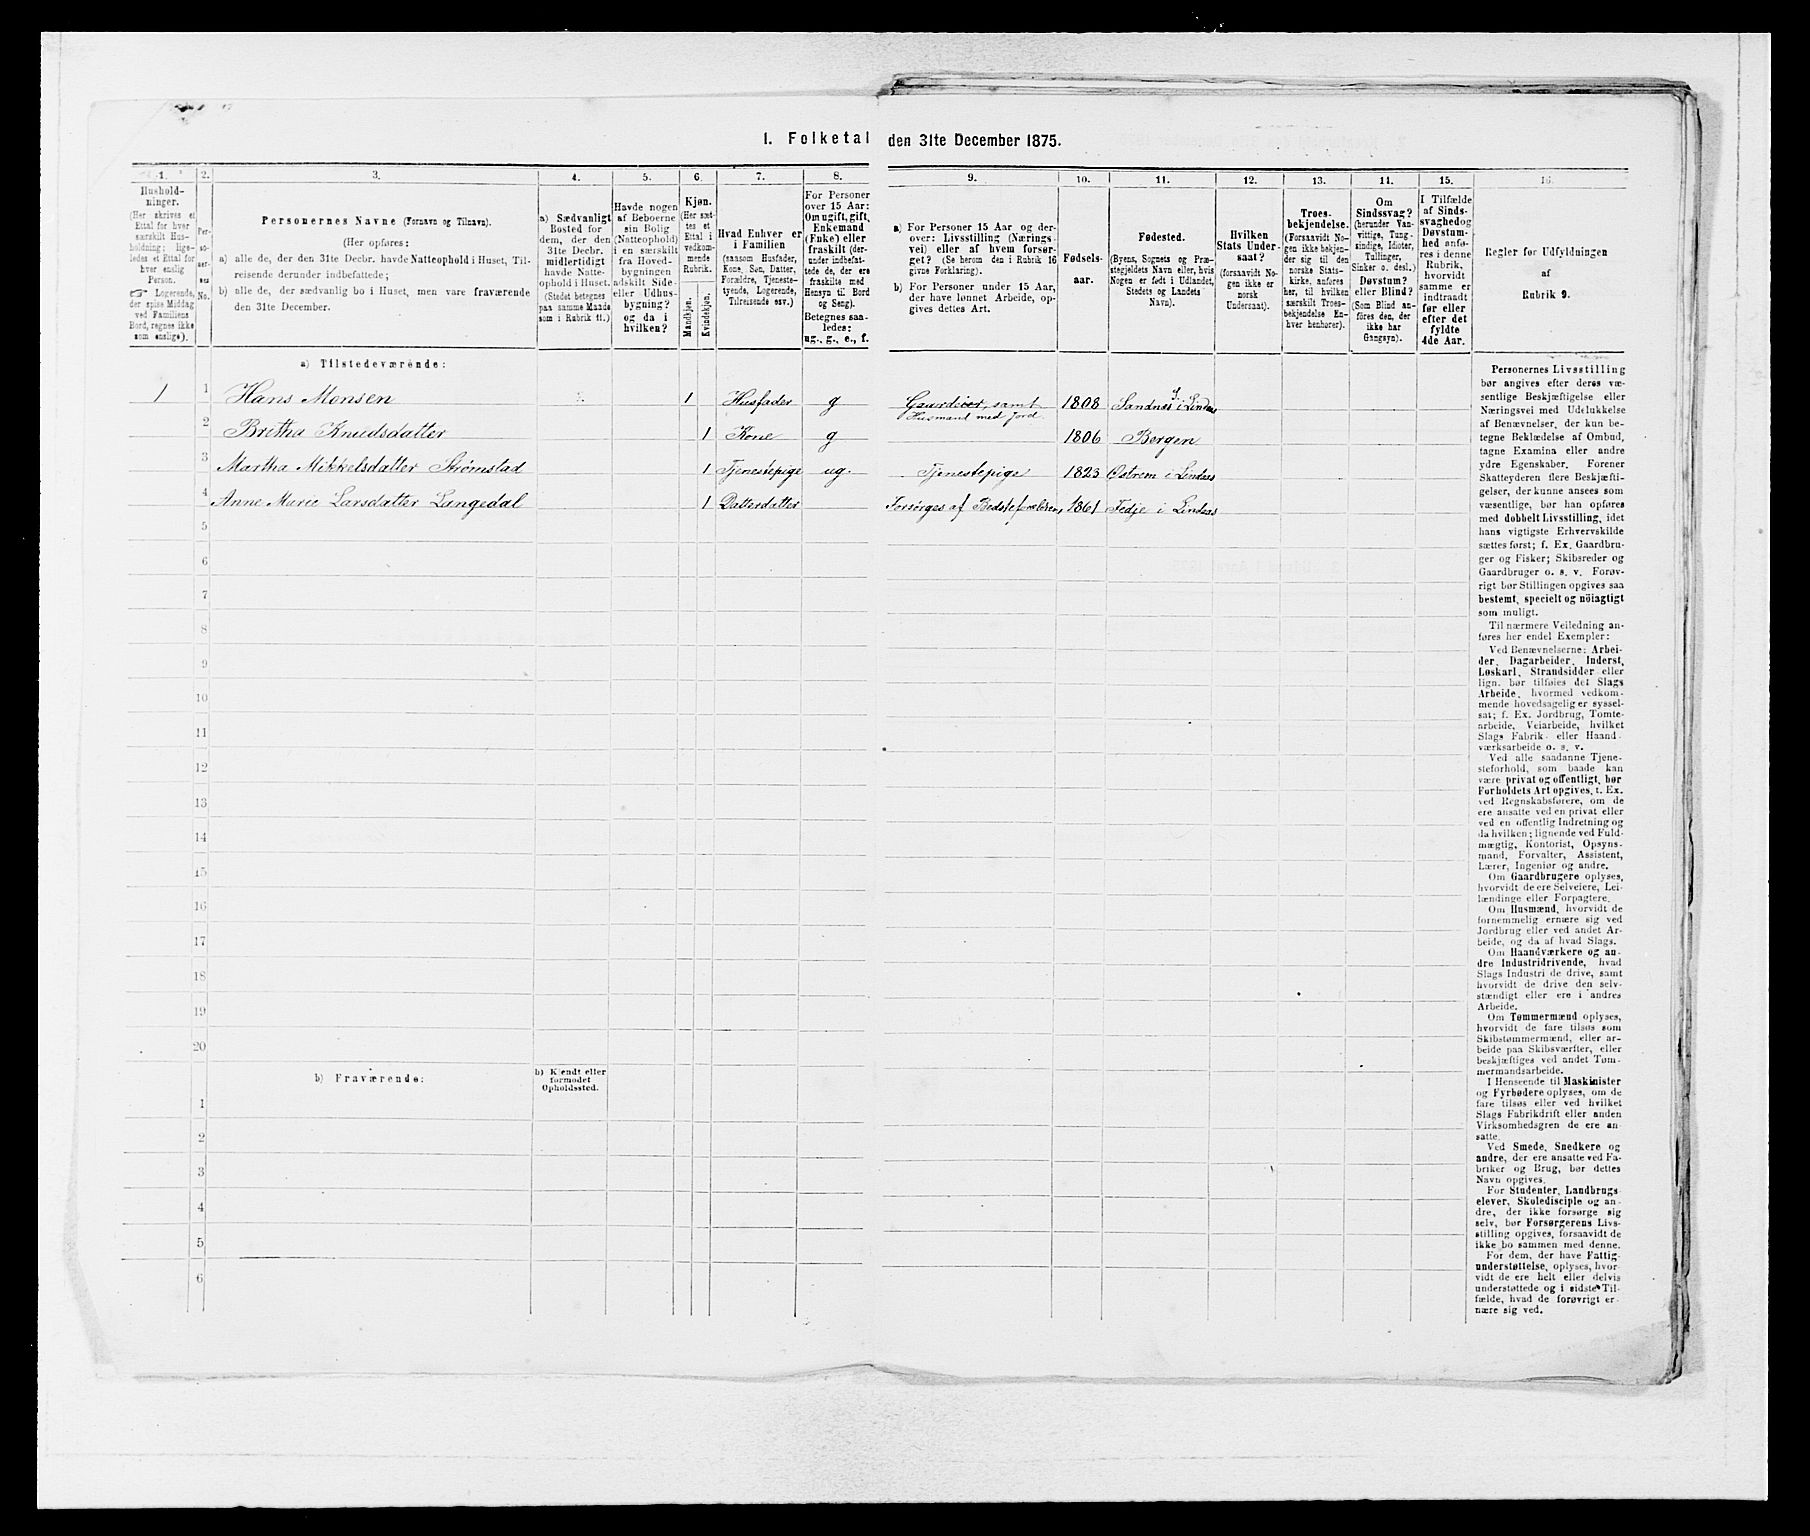 1. Folketal den 31te December 1875.
1. 2. 3. 4. 5. 6. 7. 8. 9. 10. 11. 12. 13. 14. 15. 16.
Hushold-
ninger.
(Her skrives et
Ettal for hver
særskilt Hus-
holdning; lige-
ledes et Ettal for
hver enslig
Person.
☞ Logerende,
der spise Middag
ved Familiens
Bord, regnes ikke
som enslige).
Per-
so-
ner-
nes
No.
Personernes Navne (Fornavn og Tilnavn).
(Her opføres:
a) alle de, der den 31te Decbr. havde Natteophold i Huset, Til-
reisende derunder indbefattede;
b) alle de, der sædvanlig bo i Huset, men vare fraværende
den 31te December.
a) Sædvanligt
Bosted for
dem, der den
31te Decbr.
midlertidigt
havde Natte-
ophold i Huset.
(Stedet betegnes
paa samme Maade
som i Rubrik 11.)
Havde nogen
af Beboerne
sin Bolig
(Natteophold)
i en særskilt
fra Hoved-
bygningen
adskilt Side-
eller Udhus-
bygning?
og da i
hvilken?
Kjøn.
(Her sæt-
tes et
Ettal i
vedkom-
mende
Rubrik.
Mandkjøn.
Kvindekjøn.
Hvad Enhver er
i Familien
(saasom Husfader,
Kone, Søn, Datter,
Forældre, Tjeneste-
tyende, Logerende,
Tilreisende osv.)
For Personer
over 15 Aar:
Om ugift, gift,
Enkemand
(Enke) eller
fraskilt (der-
under indbefat-
tede de, der ere
fraskilte med
Hensyn til Bord
og Seng).
Betegnes saa-
ledes:
ug., g., e., f.
a) For Personer 15 Aar og der-
over: Livsstilling (Nærings-
vei) eller af hvem forsør-
get? (Se herom den i Rubrik 16
givne Forklaring).
b) For Personer under 15 Aar,
der have lønnet Arbeide, op-
gives dettes Art.
Fødsels-
aar.
Fødested.
(Byens, Sognets og Præ-
stegjeldets Navn eller, hvis
Nogen er født i Udlandet,
Stedets og Landets
Navn).
Hvilken
Stats Under-
saat?
(forsaavidt No-
gen ikke er
norsk
Undersaat).
Troes-
bekjendelse.
(Forsaavidt No-
gen ikke bekjen-
der sig til den
norske Stats-
kirke, anføres
her, til hvilken
særskilt Troes-
bekjendelse En-
hver henhører).
Om
Sindssvag?
(herunder Van-
vittige, Tung-
sindige, Idioter,
Tullinger,
Sinker o. desl.)
Døvstum?
eller Blind?
(Som Blind an-
føres den, der
ikke har
Gangsyn).
I Tilfælde
af Sinds-
svaghed og
Døvstum-
hed anfø-
res i denne
Rubrik,
hvorvidt
samme er
indtraadt
før eller
efter det
fyldte
4de Aar.
Regler for Udfyldningen
af
Rubrik 9.
a) Tilstedeværende:
1 1 Hans Monsen 1 Husfader g Gaardeier, samt Husmand med Jord. 1808 Sandnæs i Lindaas
2 Britha Knudsdatter 1 Kone g 1806 Bergen
3 Martha Mikkelsdatter Strømstad 1 Tjenestepige ug. Tjenestepige 1823 Østrem i Lindaas
4 Anne Marie Larsdatter Langedal 1 Datterdatter Forsørges af Bedsteforældrene, 1861 Fedje i Lindaas
5
6
7
8
9
10
11
12
13
14
15
16
17
18
19
20
b) Fraværende:
b) Kjendt eller
formodet
Opholdssted.
1
2
3
4
5
6
Personernes Livsstilling
bør angives efter deres væ-
sentlige Beskjæftigelse eller
Næringsvei med Udelukkelse
af Benævnelser, der kun be-
tegne Beklædelse af Ombud,
tagne Examina eller andre
ydre Egenskaber. Forener
Skatteyderen flere Beskjæfti-
gelser, der kunne ansees som
væsentlige, bør han opføres
med dobbelt Livsstilling, idet
hans vigtigste Erhvervskilde
sættes først; f. Ex. Gaardbru-
ger og Fisker; Skibsreder og
Gaardbruger o. s. v. Forøv-
rigt bør Stillingen opgives saa
bestemt, specielt og nöiagtigt
som muligt.
Til nærmere Veiledning an-
føres her endel Exempler:
Ved Benævnelserne: Arbei-
der, Dagarbeider, Inderst,
Løskarl, Strandsidder eller
lign. bør tilføies det Slags
Arbeide, hvormed vedkom-
mende hovedsagelig er syssel-
sat; f. Ex. Jordbrug, Tomte-
arbeide, Veiarbeide, hvilket
Slags Fabrik- eller Haand-
værksarbeide o. s. v.
Ved alle saadanne Tjene-
steforhold, som baade kan
være privat og offentligt, bør
Forholdets Art opgives, t. Ex.
ved Regnskabsførere, om de
ere ansatte ved en privat eller
ved en offentlig Indretning og
da hvilken; lignende ved Fuld-
mægtig, Kontorist, Opsyns-
mand, Forvalter, Assistent,
Lærer, Ingeniør og andre.
Om Gaardbrugere oplyses,
hvorvidt de ere Selveiere, Lei-
lændinge eller Forpagtere.
Om Husmænd, hvorvidt de
fornemmelig ernære sig ved
Jordbrug eller ved andet Ar-
beide, og da af hvad Slags.
Om Haandværkere og an-
dre Industridrivende, hvad
Slags Industri de drive, samt
hvorvidt de drive den selv-
stændigt eller ere i andres
Arbeide.
Om Tømmermænd oplyses,
hvorvidt de fare tilsøs som
Skibstømmermænd, eller ar-
beide paa Skibsværfter, eller
beskjæftiges ved andet Tøm-
mermandsarbeide.
I Henseende til Maskinister
og Fyrbødere oplyses, om de
fare tilsøs eller ved hvilket
Slags Fabrikdrift eller anden
Virksomhedsgren de ere an-
satte.
Ved Smede, Snedkere og
andre, der ere ansatte ved Fa-
briker og Brug, bør dettes
Navn opgives.
For Studenter, Landbrugs-
elever, Skoledisciple og an-
dre, der ikke forsørge sig
selv, bør Forsørgerens Livs-
stilling opgives, forsaavidt de
ikke bo sammen med denne.
For dem, der have Fattig-
understøttelse, oplyses, hvor-
vidt de ere helt eller delvis
understøttede og i sidste Til-
fælde, hvad de forøvrigt er-
nære sig ved.